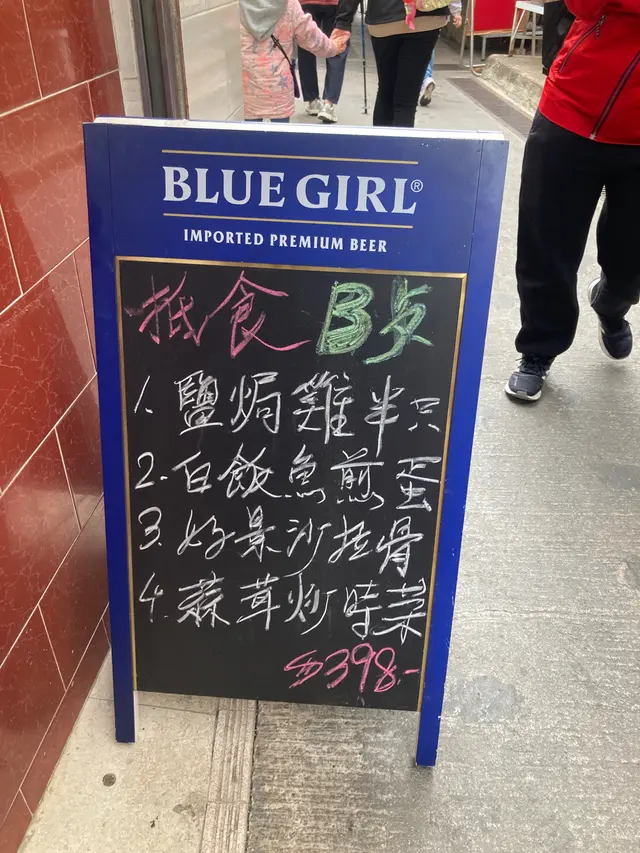 BLUE GIRL®
IMPORTED PREMIUM BEER
抵食 B餐
1. 鹽焗雞半只
2. 白飯魚煎蛋
3. 好景沙拉骨
4. 蒜茸炒時菜
$398.-